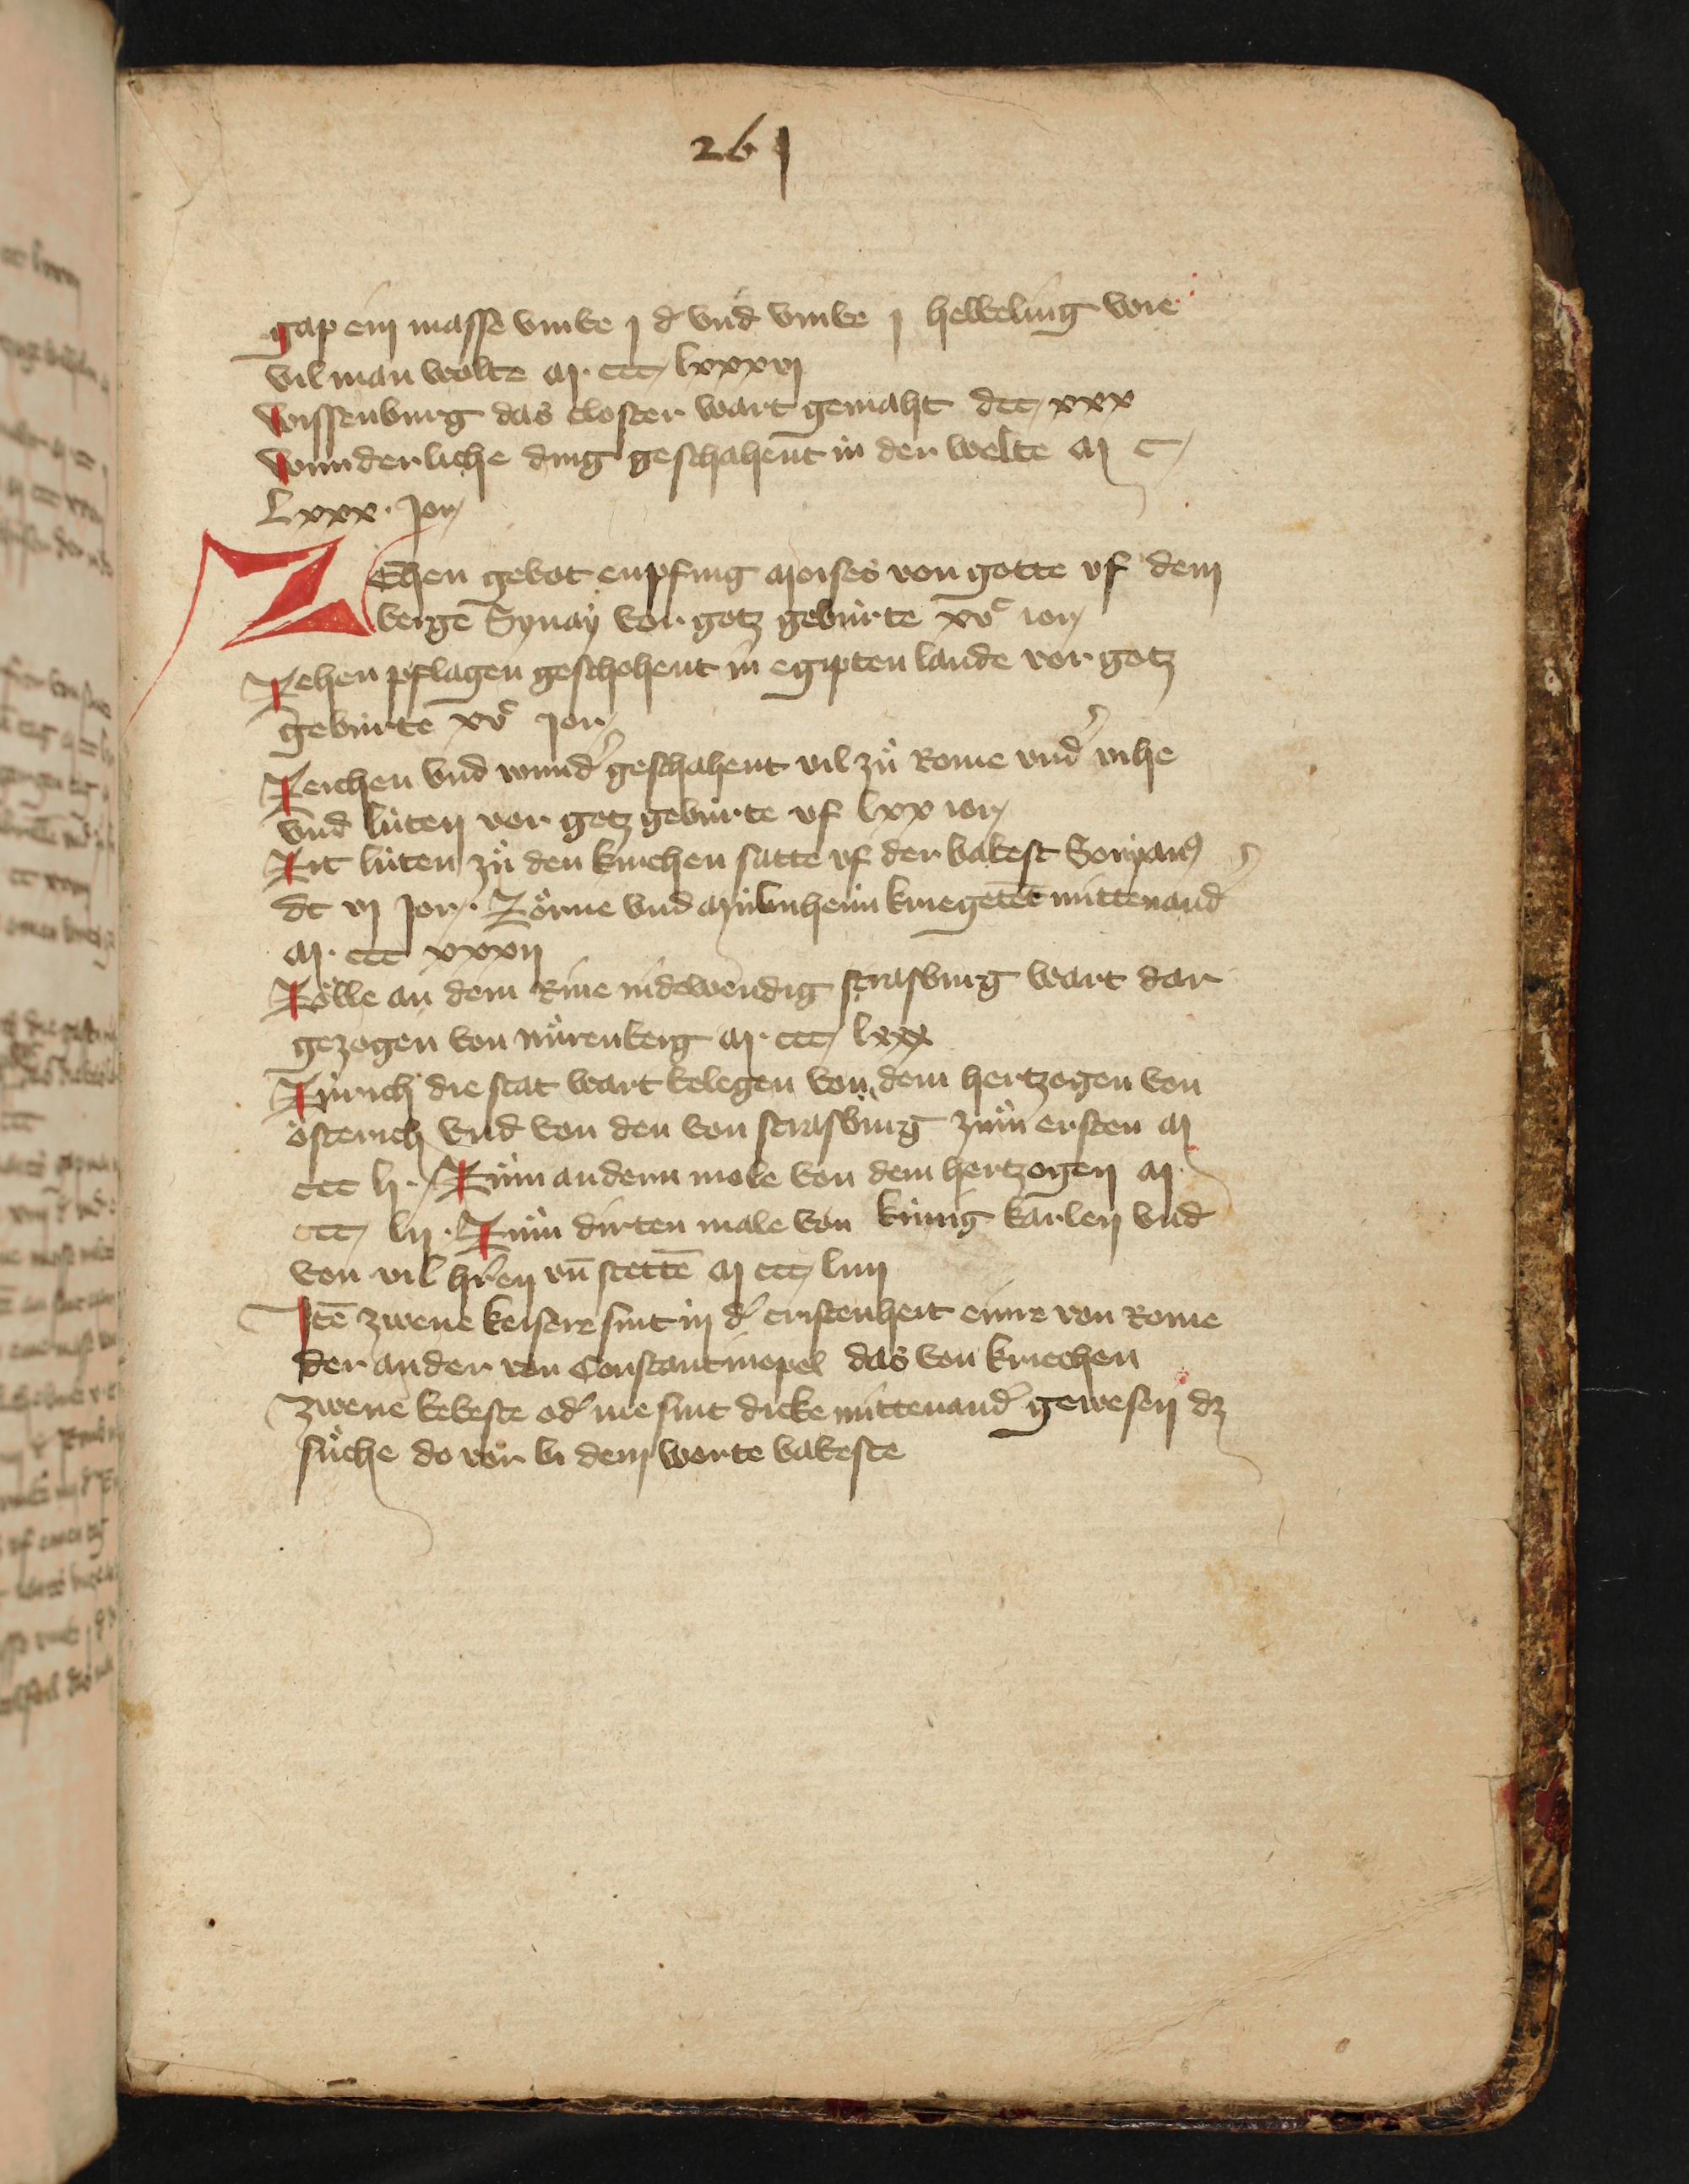 261
gap ein masse vmbe j d̕ vnd vmbe j helbeling wie
vil man wolte M· ccc lxxxvj
Wissenburg das closter wart gemaht dcc xxx
Wunderliche ding geschahent in der welte M c
Lxxx· jor
ZEhen gebot enpfing Moises von gotte vf dem
berge Synay vor gotz gebúrte xvᶜ ior
Zehen pflagen geschohent in egipten lande vor gotz
gebúrte xvᶜ jor
Zeichen vnd wund̕ geschahent vil zů Rome vnd̕ vihe
vnd lúten vor gotz gebúrte vf lxx ior
Zit lúten zů den kirchen satte vf der babest
dc vj jor· Zörne vnd Múlnheim kriegetēt mittenand̕
M· ccc xxxij
Zölle an dem Rine nidewendig strasburg wart dar
gezogen von núrenberg M· ccc lxxx
Zúrich die stat wart belegen von dem hertzogen von
österich vnd von den von strasburg zům ersten M
ccc lj· Zům andern mole von dem hertzogen M·
ccc lij· Zům dirten male von kúnig karlen vnd
von vil h̕ren vn̄ stettē M ccc liiij
Itē zwene keisere sint in d̕ cristenheit einre von Rome
der ander von Constantinopel das von kriechen
Zwene bebeste od̕ me sint dicke mittenand̕ gewesen dz
sůche do vor bi dem worte babeste